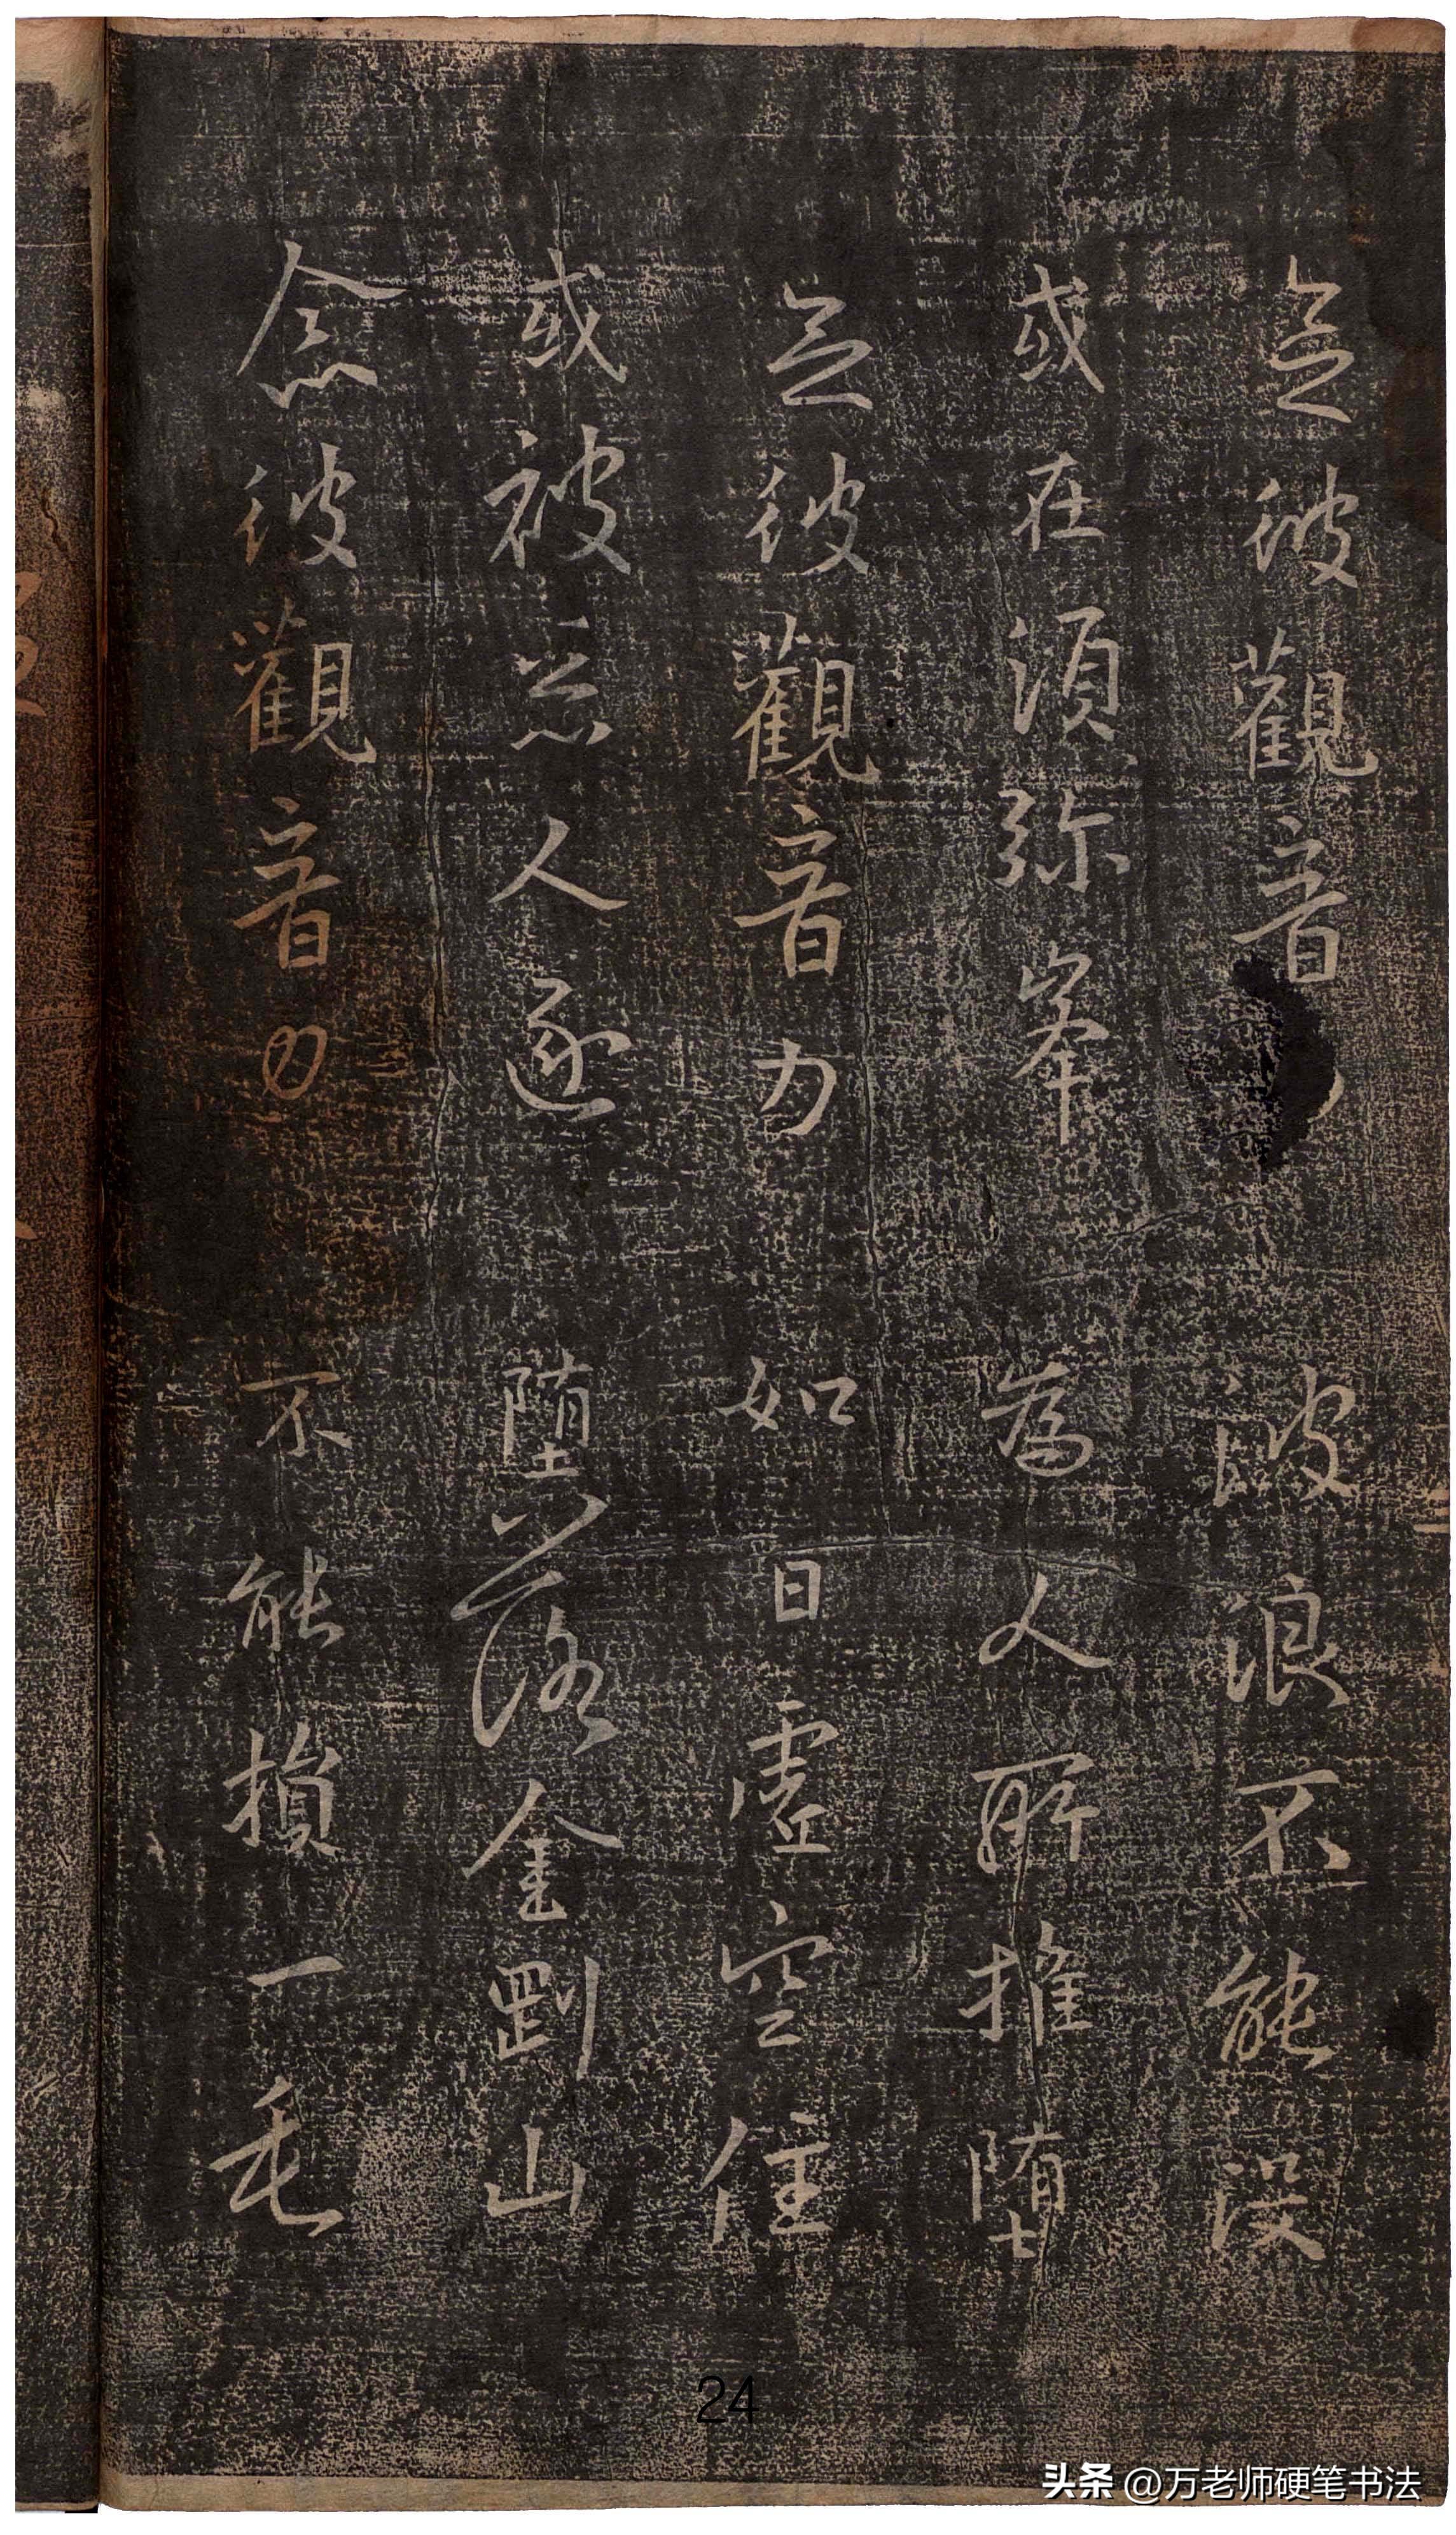 念彼觀音 波浪不能没
或在須弥峯 為人所推堕
念彼觀音力 如日虛空住
或被惡人逐 堕落金剛山
念彼觀音力 不能損一毛
24
头条 @万老师硬笔书法